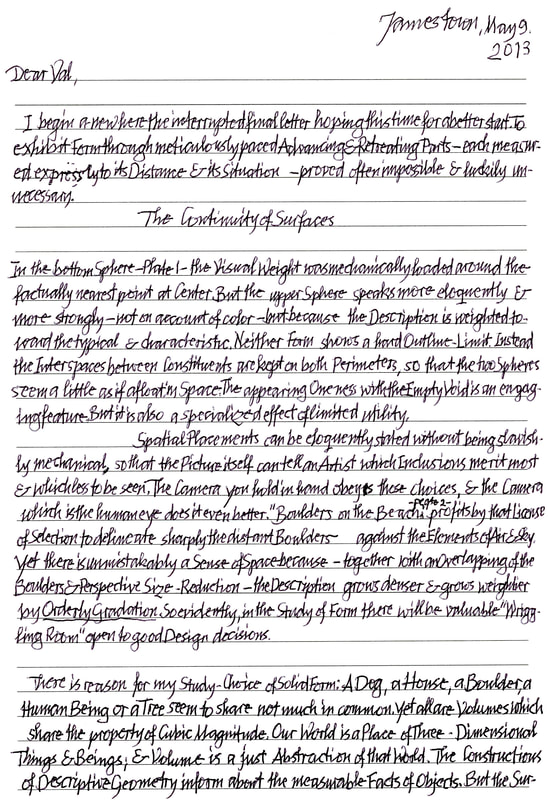 Jamestown, May 9.
2013
Dear Val,
I begin anew here the interrupted final letter hoping this time for a better start. To
exhibit Form through meticulously paced Advancing & Retreating Parts - each measur-
ed expressly to its Distance & its Situation - proved often impossible & luckily un-
necessary.
The Continuity of Surfaces
In the bottom Sphere - Plate 1 - the Visual Weight was mechanically loaded around the
factually nearest point at Center. But the upper Sphere speaks more eloquently &
more strongly - not on account of color - but because the Description is weighted to-
ward the typical & characteristic. Neither Form shows a hard Outline - Limit. Instead
the Interspaces between Constituents are kept on both Perimeters, so that the two Spheres
seem a little as if afloat in Space. The appearing Oneness with the Empty Void is an engag-
ing feature. But it is also a specialized effect of limited utility.
Spatial Placements can be eloquently stated without being slavish-
ly mechanical, so that the Picture itself can tell an Artist which Inclusions merit most
& which less to be seen. The Camera you hold in hand obeys these choices, & the Camera
which is the human eye does it even better. "Boulders on the Beach" - Plate 2 - profits by that license
of Selection to delineate sharply the distant Boulders against the Elements of Air & Sky.
Yet there is unmistakably a Sense of Space because - together with an Overlapping of the
Boulders & Perspective Size - Reduction - the Description grows denser & grows weightier
by Orderly Gradation. So evidently, in the Study of Form there will be valuable "Wrigg-
ling Room" open to good Design decisions.
There is reason for my Study - Choice of Solid Form: A Dog, a House, a Boulder, a
Human Being or a Tree seem to share not much in common. Yet all are Volumes which
share the property of Cubic Magnitude. Our World is a Place of Three - Dimensional
Things & Beings, & Volume is a just Abstraction of that World. The Constructions
of Descriptive Geometry inform about the measurable Facts of Objects. But the Sur-